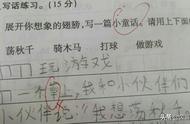 写话练习。(15分)
展开你想象的翅膀,写一篇小童话。请用上下面
荡秋千 骑木马 打球 做游戏
玩游戏
一个南上,我和小伙伴们
小伙伴说:"我想荡秋千